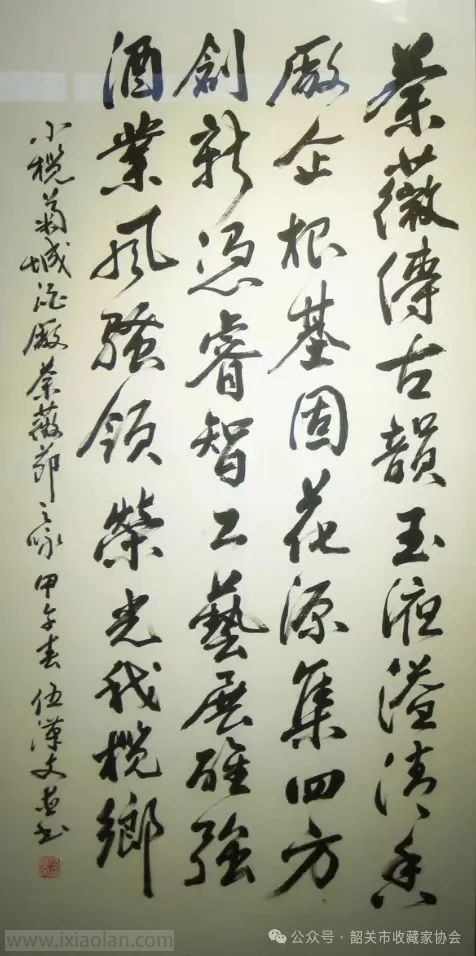 荼薇傳古韻玉液溢清香
廠企根基固花源集四方
創新憑睿智工藝展雄強
酒業風騷領榮光我欖鄉
小欖菊城酒廠荼薇節之咏甲午春伍漢文並书
www.ixiaolan.com
公众号·韶关市收藏家协会